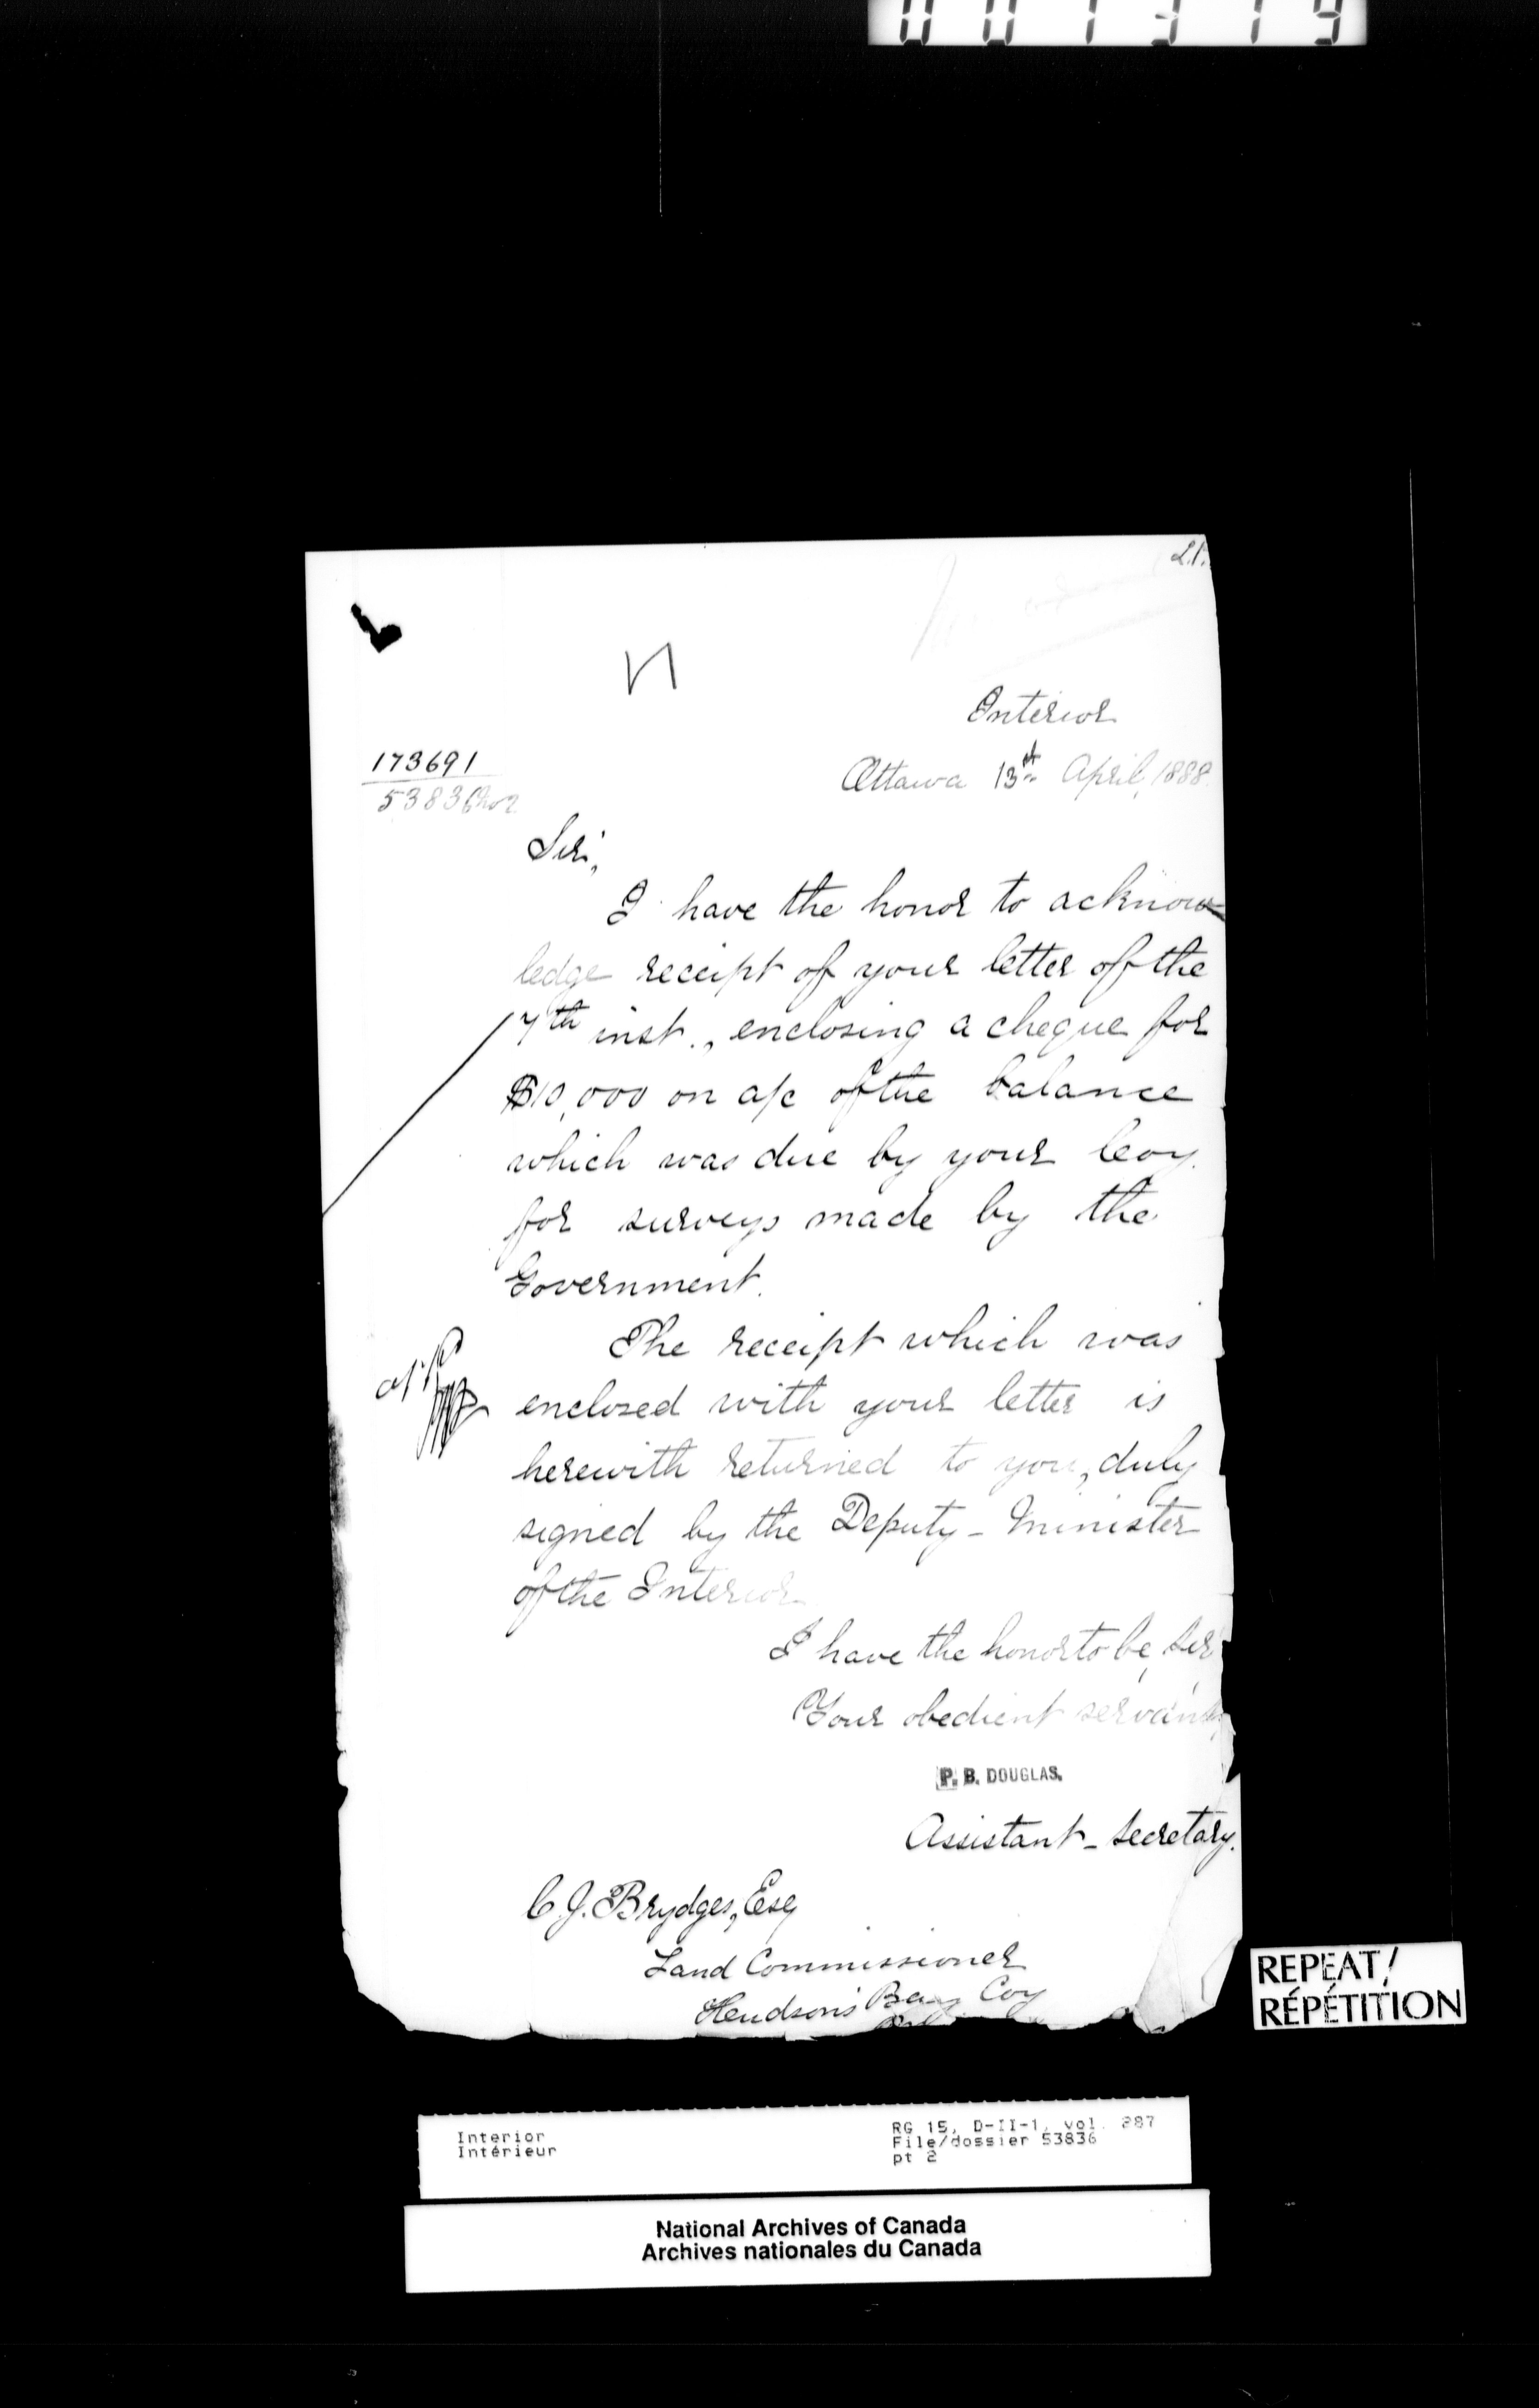 001319
21.
Interior
Ottawa 13th April, 1888.
173691
53836 No 2
Sir,
I have the honor to acknow-
ledge receipt of your letter of the
7th inst., enclosing a cheque for
$10,000 on a/c of the balance
which was due by your Coy.
for surveys made by the
Government.
The receipt which was
enclosed with your letter is
herewith returned to you, duly
signed by the Deputy-Minister
of the Interior.
I have the honor to be, Sir,
Your obedient servant,
P. B. DOUGLAS.
Assistant-Secretary.
C. J. Brydges, Esq
Land Commissioner
Hudson's Bay Coy
REPEAT/
RÉPÉTITION
Interior
Intérieur
RG 15, D-II-1, vol. 287
File/dossier 53836
pt 2
National Archives of Canada
Archives nationales du Canada